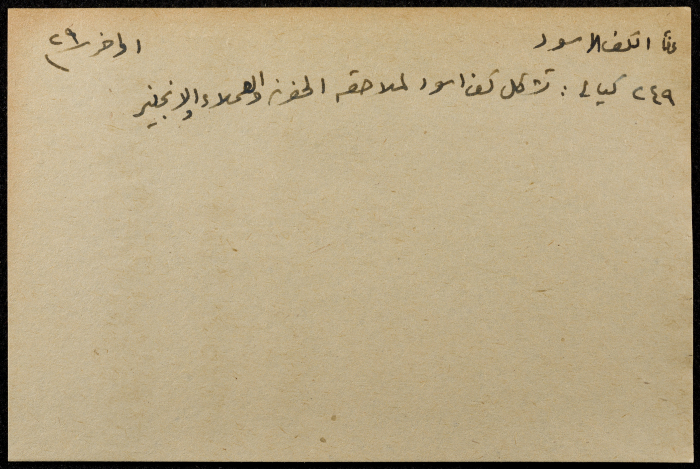 الكف الاسود اواخر ٢٩
٢٤٩ كيالي : تشكل كف اسود لملاحقة الخونة والعملاء والانجليز